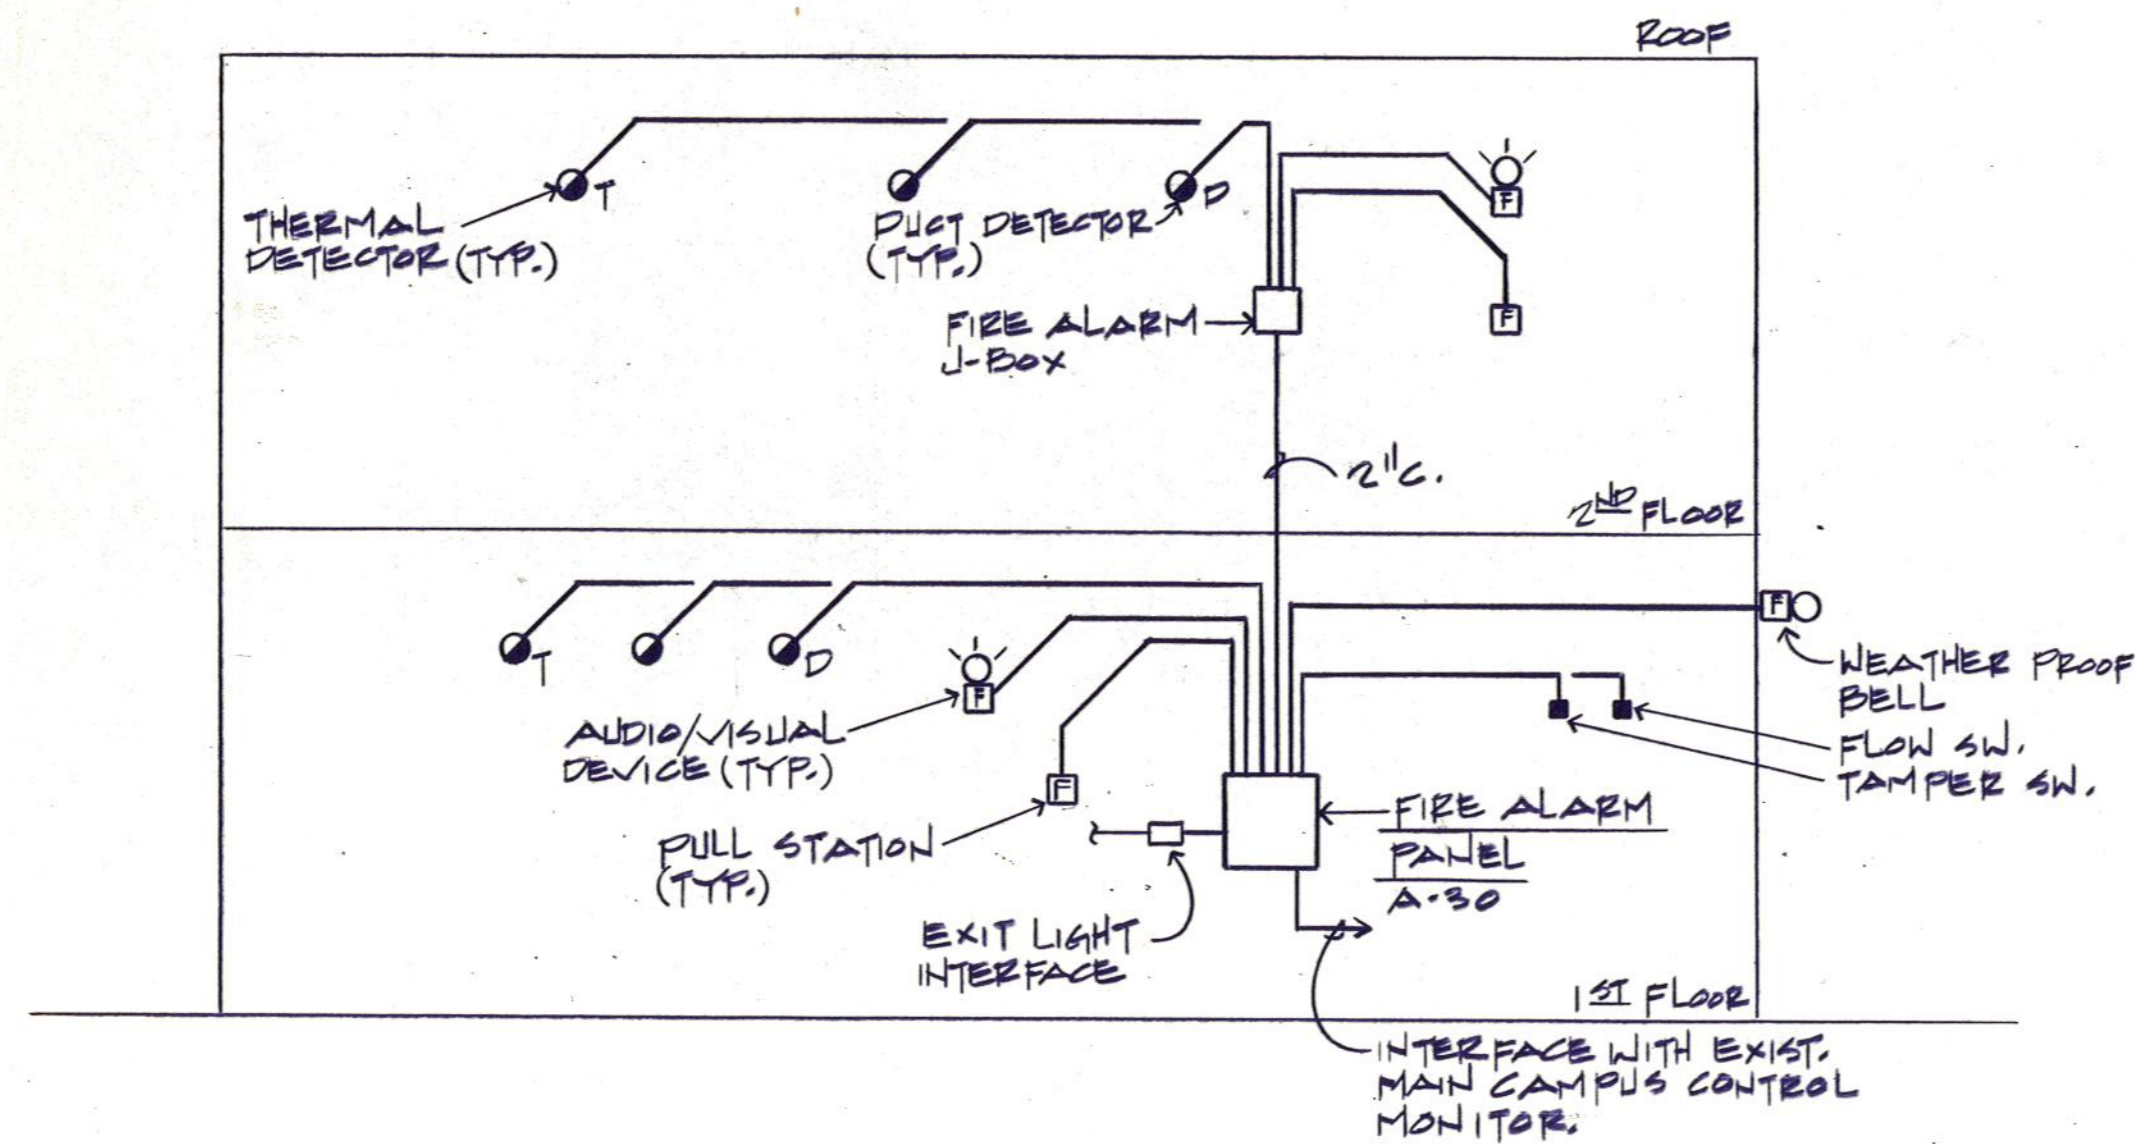 ROOF
T
THERMAL
DETECTOR (TYP.)
D
DUCT DETECTOR
(TYP.)
F
F
FIRE ALARM
J-BOX
2"C.
2ND FLOOR
T
D
F
AUDIO/VISUAL
DEVICE (TYP.)
F
PULL STATION
(TYP.)
EXIT LIGHT
INTERFACE
F
WEATHER PROOF
BELL
FLOW SW.
TAMPER SW.
FIRE ALARM
PANEL
A-30
1ST FLOOR
INTERFACE WITH EXIST.
MAIN CAMPUS CONTROL
MONITOR.